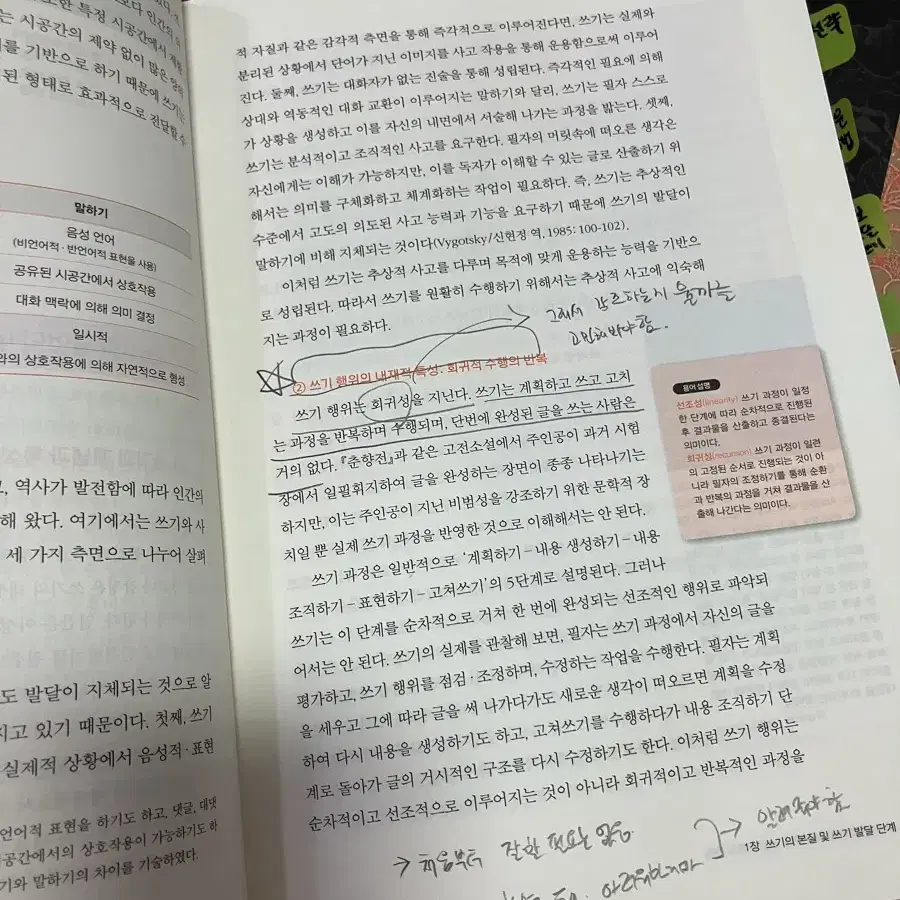 보다 인간의
또한 특정 시공간에서
는 시공간의 제약 없이 많은
를 기반으로 하기 때문에 쓰기는
된 형태로 효과적으로 전달할 수
말하기
음성 언어
(비언어적·반언어적 표현을 사용)
공유된 시공간에서 상호작용
대화 맥락에 의해 의미 결정
일시적
와의 상호작용에 의해 자연적으로 형성
고, 역사가 발전함에 따라 인간의
해 왔다. 여기에서는 쓰기와 사
세 가지 측면으로 나누어 살펴
도 발달이 지체되는 것으로 알
지고 있기 때문이다. 첫째, 쓰기
실제적 상황에서 음성적·표현
언어적 표현을 하기도 하고, 댓글, 대댓
시공간에서의 상호작용이 가능하기도 하
기와 말하기의 차이를 기술하였다.
적 자질과 같은 감각적 측면을 통해 즉각적으로 이루어진다면, 쓰기는 실제와
분리된 상황에서 단어가 지닌 이미지를 사고 작용을 통해 운용함으로써 이루어
진다. 둘째, 쓰기는 대화자가 없는 진술을 통해 성립된다. 즉각적인 필요에 의해
상대와 역동적인 대화 교환이 이루어지는 말하기와 달리, 쓰기는 필자 스스로
가 상황을 생성하고 이를 자신의 내면에서 서술해 나가는 과정을 밟는다. 셋째,
쓰기는 분석적이고 조직적인 사고를 요구한다. 필자의 머릿속에 떠오른 생각은
자신에게는 이해가 가능하지만, 이를 독자가 이해할 수 있는 글로 산출하기 위
해서는 의미를 구체화하고 체계화하는 작업이 필요하다. 즉, 쓰기는 추상적인
수준에서 고도의 의도된 사고 능력과 기능을 요구하기 때문에 쓰기의 발달이
말하기에 비해 지체되는 것이다(Vygotsky/신현정 역, 1985: 100-102).
이처럼 쓰기는 추상적 사고를 다루며 목적에 맞게 운용하는 능력을 기반으
로 성립된다. 따라서 쓰기를 원활히 수행하기 위해서는 추상적 사고에 익숙해
지는 과정이 필요하다.
그래서
② 쓰기 행위의 내재적 특성: 회귀적 수행의 반복
쓰기 행위는 회귀성을 지닌다. 쓰기는 계획하고 쓰고 고치
는 과정을 반복하며 수행되며, 단번에 완성된 글을 쓰는 사람은
거의 없다. 『춘향전』과 같은 고전소설에서 주인공이 과거 시험
장에서 일필휘지하여 글을 완성하는 장면이 종종 나타나기는
하지만, 이는 주인공이 지닌 비범성을 강조하기 위한 문학적 장
치일 뿐 실제 쓰기 과정을 반영한 것으로 이해해서는 안 된다.
쓰기 과정은 일반적으로 ‘계획하기 – 내용 생성하기 – 내용
조직하기 – 표현하기 – 고쳐쓰기’의 5단계로 설명된다. 그러나
쓰기는 이 단계를 순차적으로 거쳐 한 번에 완성되는 선조적인 행위로 파악되
어서는 안 된다. 쓰기의 실제를 관찰해 보면, 필자는 쓰기 과정에서 자신의 글을
평가하고, 쓰기 행위를 점검·조정하며, 수정하는 작업을 수행한다. 필자는 계획
을 세우고 그에 따라 글을 써 나가다가도 새로운 생각이 떠오르면 계획을 수정
하여 다시 내용을 생성하기도 하고, 고쳐쓰기를 수행하다가 내용 조직하기 단
계로 돌아가 글의 거시적인 구조를 다시 수정하기도 한다. 이처럼 쓰기 행위는
순차적이고 선조적으로 이루어지는 것이 아니라 회귀적이고 반복적인 과정을
용어 설명
선조성(linearity) 쓰기 과정이 일정
한 단계에 따라 순차적으로 진행된
후 결과물을 산출하고 종결된다는
의미이다.
회귀성(recursion) 쓰기 과정이 일련
의 고정된 순서로 진행되는 것이 아
니라 필자의 조정하기를 통해 순환
과 반복의 과정을 거쳐 결과물을 산
출해 나간다는 의미이다.
→ 처음부터 잘할 필요는 없음
→ 알려줘야 함
1장 쓰기의 본질 및 쓰기 발달 단계